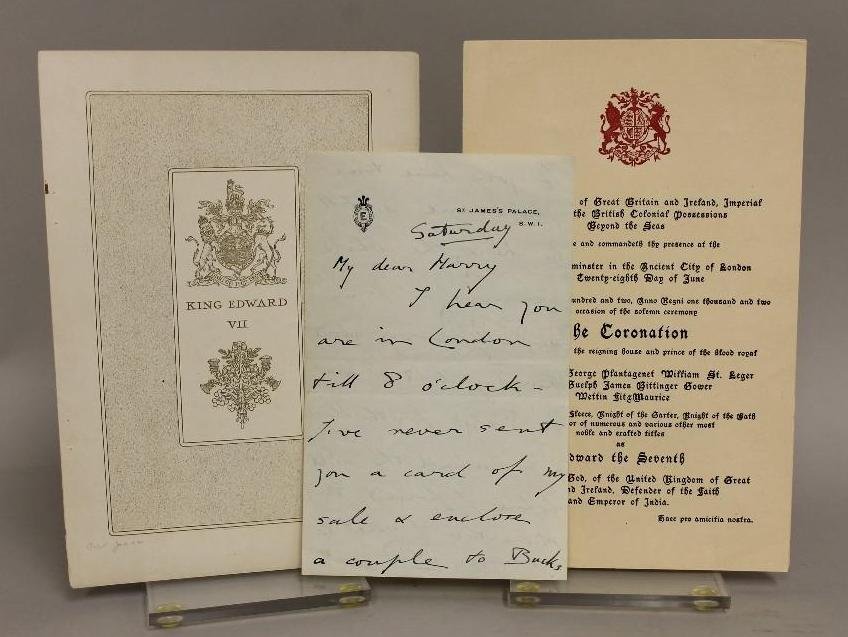 KING EDWARD
VII
E
ST JAMES'S PALACE,
S.W.1.
Saturday
My dear Harry
I hear you
are in London
till 8 o'clock -
I've never sent
you a card of my
sale & enclose
a couple to Bucks
of Great Britain and Ireland, Imperial
the British Colonial Possessions
Beyond the Seas
e and commandeth thy presence at the
minster in the Ancient City of London
Twenty-eighth Day of June
undred and two, Anno Regni one thousand and two
occasion of the solemn ceremony
he Coronation
the reigning house and prince of the blood royal
George Plantagenet William St. Leger
Guelph James Bittinger Gower
Wettin FitzMaurice
Fleece, Knight of the Garter, Knight of the Bath
or of numerous and various other most
noble and exalted titles
as
dward the Seventh
God, of the United Kingdom of Great
nd Ireland, Defender of the Faith
and Emperor of India.
Haec pro amicitia nostra.